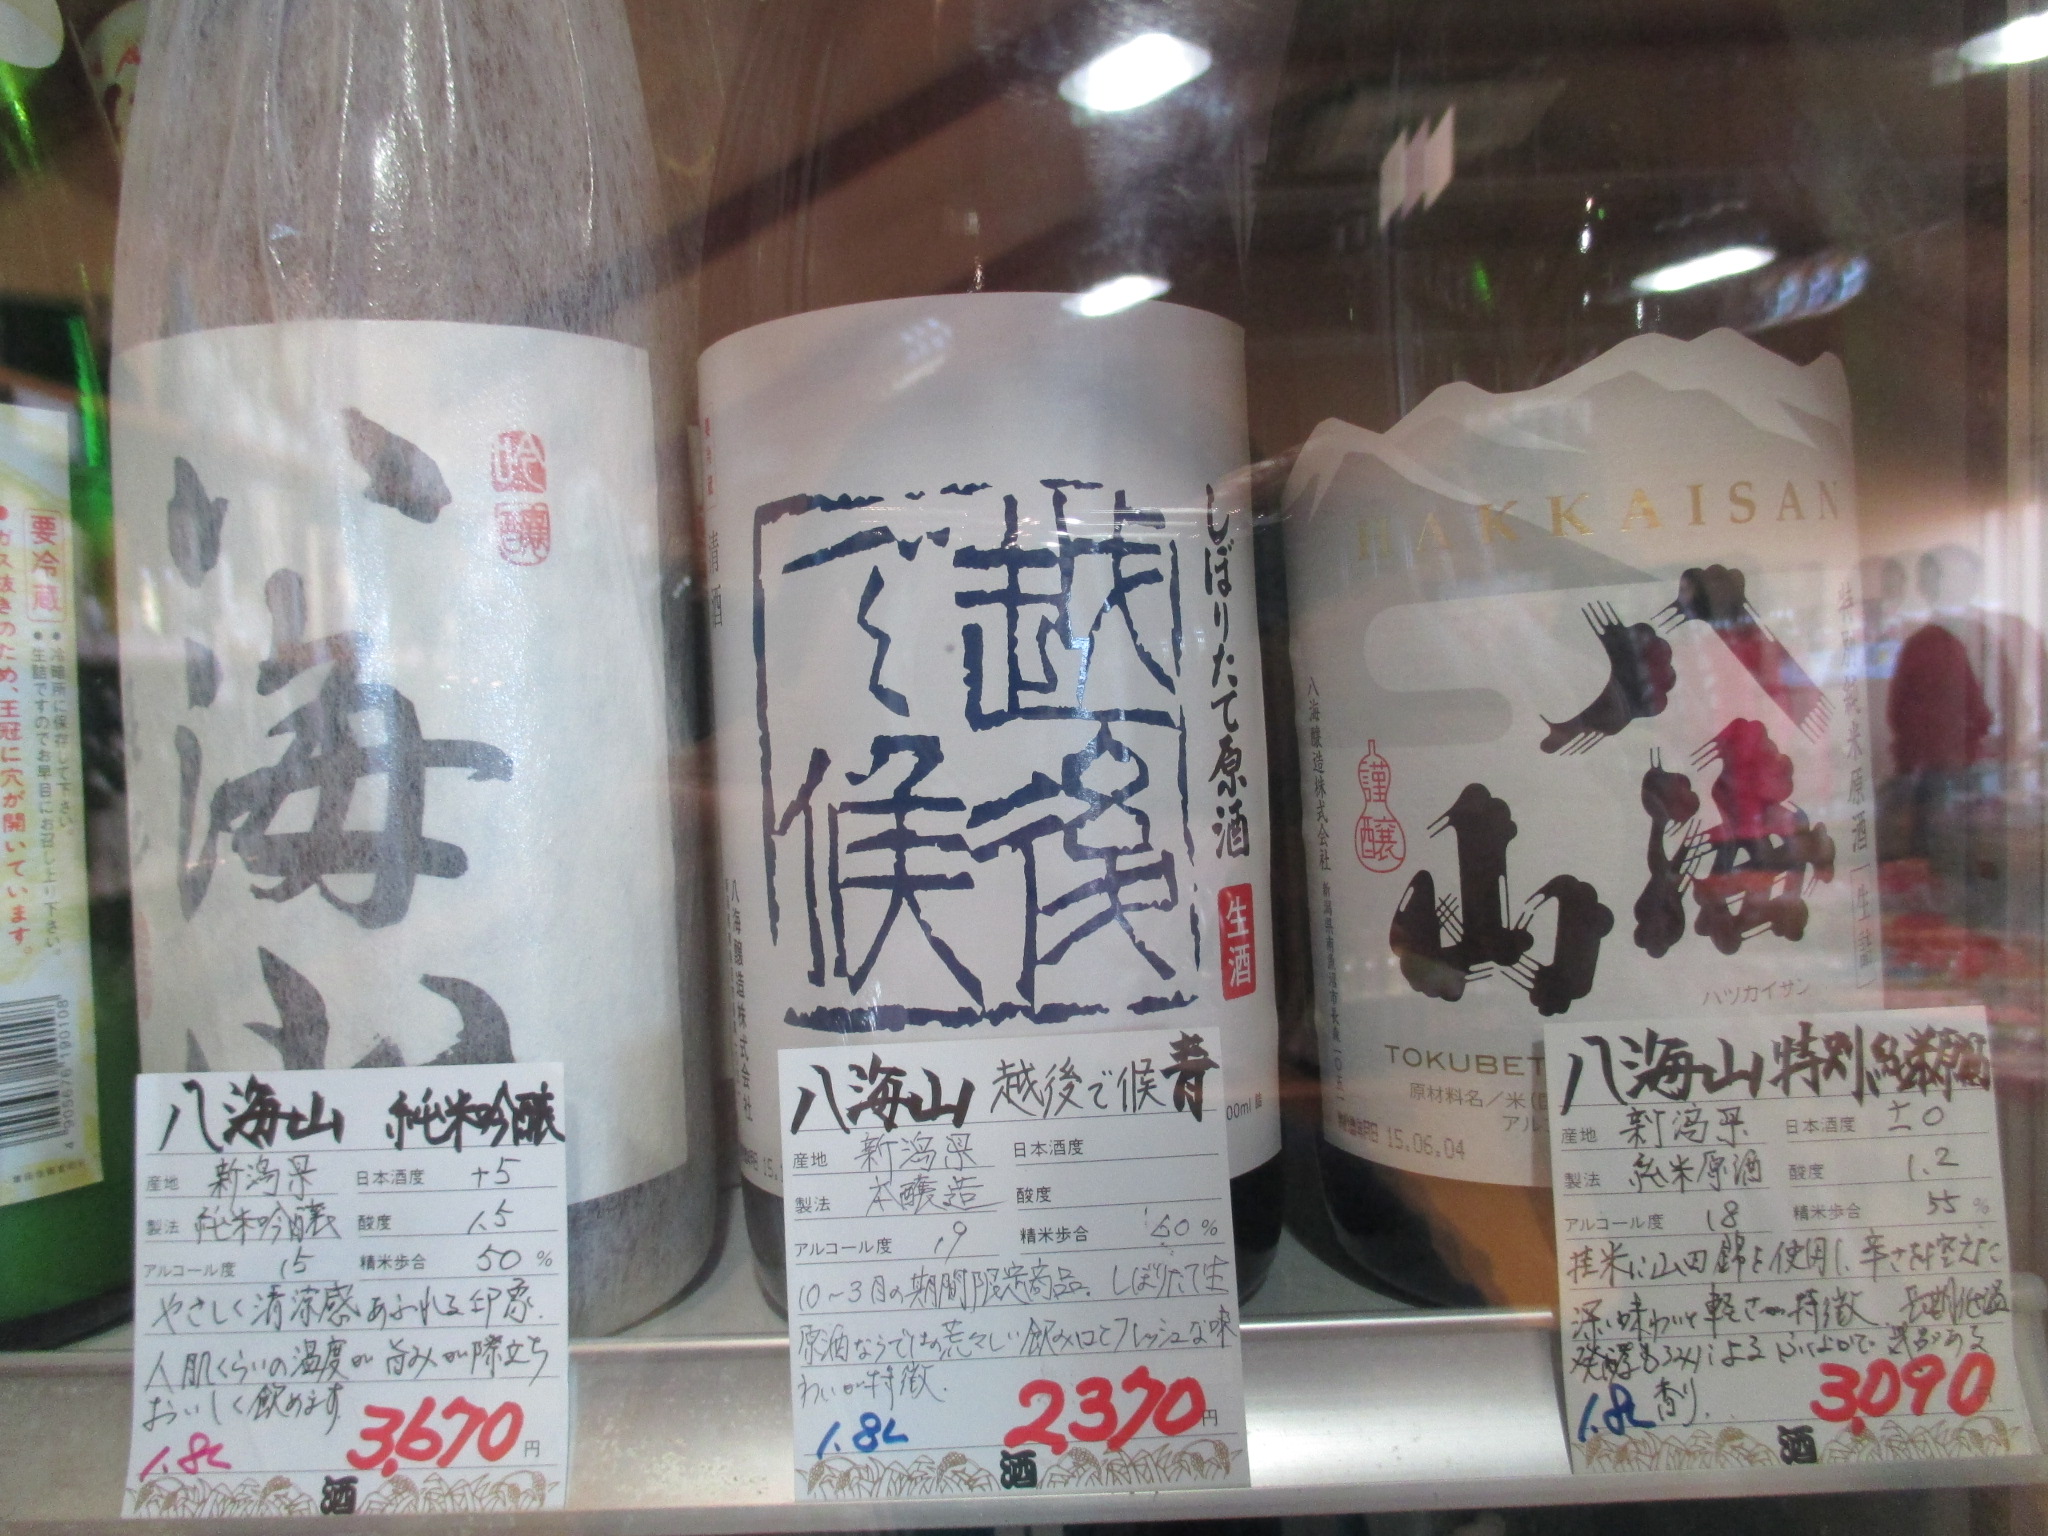 要冷蔵
●冷暗所に保存して下さい。
●生詰ですのでお早目にお召し上り下さい。
●ガス抜きのため、王冠に穴が開いています。
4 903676 190108
吟醸
八海山
八海山 純米吟醸
産地 新潟県 日本酒度 +5
製法 純米吟醸 酸度 1.5
アルコール度 15 精米歩合 50 %
やさしく清涼感あふれる印象.
人肌くらいの温度が旨みが際立ち
おいしく飲めます
1.8L 3,670 円
酒
清酒
しぼりたて原酒
生酒
越後で候
八海醸造株式会社
八海山 越後で候 青
産地 新潟県 日本酒度
製法 本醸造 酸度
アルコール度 19 精米歩合 60 %
10～3月の期間限定商品. しぼりたて生
原酒ならではの荒々しい飲み口とフレッシュな味
わいが特徴.
1.8L 2,370 円
酒
HAKKAISAN
特別純米原酒 生詰
八海山
ハツカイサン
謹醸
八海醸造株式会社
TOKUBET
原材料名／米
15.06.04
八海山 特別純米原酒
産地 新潟県 日本酒度 ±0
製法 純米原酒 酸度 1.2
アルコール度 18 精米歩合 55 %
掛米に山田錦を使用し、辛さを控えた
深い味わいと軽さが特徴 長期低温
発酵もろみによるふくよかで
香り.
1.8L 3,090 円
酒